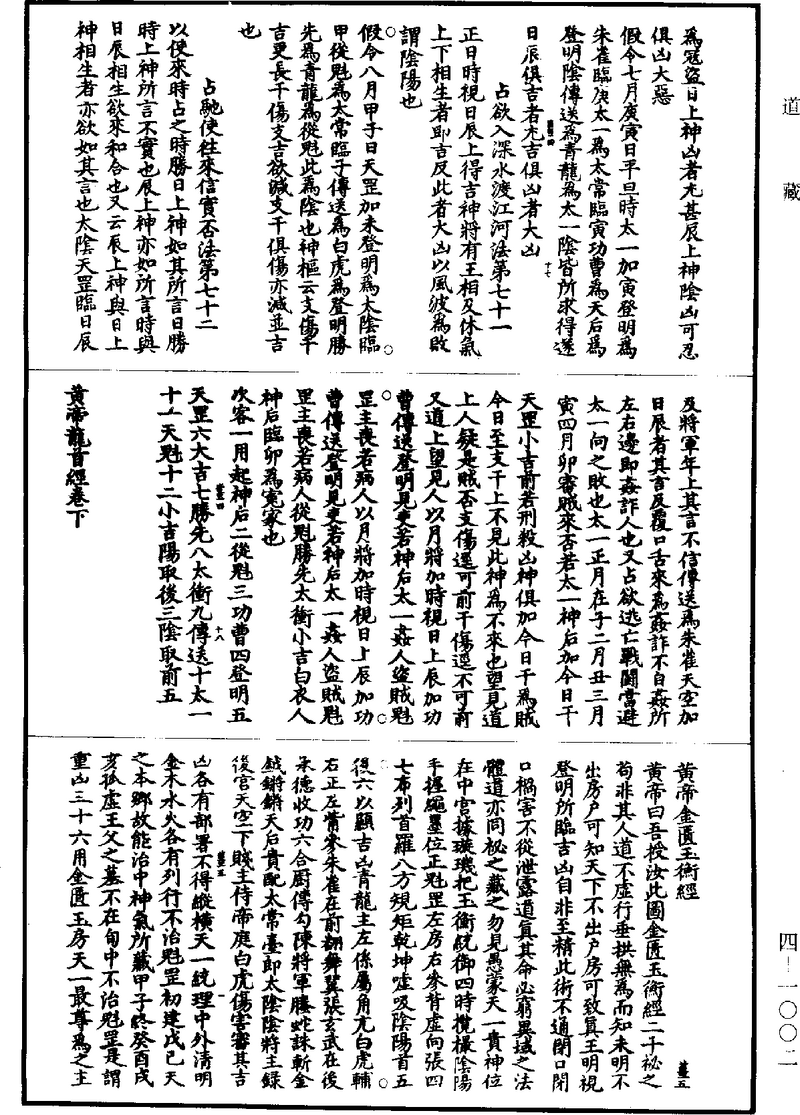 道藏
為冦盜日上神凶者尤甚辰上神陰凶可忍
俱凶大惡
假令七月庚寅日平旦時太一加寅登明為
朱雀臨庚太一為太常臨寅功曹為天后為
登明陰傳送為青龍為太一陰皆所求得遂
日辰俱吉者尤吉俱凶者大凶
十七
占欲入深水渡江河法第七十一
正日時視日辰上得吉神將有王相及休氣
上下相生者即吉反此者大凶以風波為敗
謂陰陽也
假令八月甲子日天罡加未登明為太陰臨
甲從魁為太常臨子傳送為白虎為登明勝
先為青龍為從魁此為陰也神樞云支傷干
吉更長干傷支吉欲減支干俱傷亦減並吉
也
占馳使往來信實否法第七十二
以便來時占之時勝日上神如其所言日勝
時上神所言不實也辰上神亦如所言時與
日辰相生欲來和合也又云辰上神與日上
神相生者亦欲如其言也太陰天罡臨日辰
及將軍年上其言不信傳送為朱雀天空加
日辰者其言反覆口舌來為姦詐不自姦所
左右邊即姦詐人也又占欲逃亡戰鬪當避
太一向之敗也太一正月在子二月丑三月
寅四月卯審賊來否若太一神后加今日干
天罡小吉前若刑殺凶神俱加今日干為賊
今日至支干上不見此神為不來也望見道
上人疑是賊否支傷還可前干傷還不可前
又道上望見人以月將加時視日上辰加功
曹傳送登明見吏若神后太一姦人盜賊魁
罡主喪若病人以月將加時視日上辰加功
曹傳送登明見吏若神后太一姦人盜賊魁
罡主喪若病人從魁勝先太衝小吉白衣人
神后臨卯為寃家也
次客一用起神后二從魁三功曹四登明五
天罡六大吉七勝先八太衝九傳送十太一
十八
十一天魁十二小吉陽取後三陰取前五
黃帝龍首經卷下
黃帝金匱玉衡經
薑五
黃帝曰吾授汝此圖金匱玉衡經二千祕之
苟非其人道不虛行垂拱無為而知未明不
出房戶可知天下不出戶房可致真王明視
登明所臨吉凶自非至精此術不通閉口閉
口禍害不從泄露道真其命必窮異域之法
體道亦同祕之藏之勿見愚蒙天一貴神位
在中宮據璇璣把玉衡統御四時攬撮陰陽
手握繩墨位正魁罡左房右參背虛向張四
七布列首羅八方規矩乾坤噓吸陰陽首五
後六以顯吉凶青龍主左係屬角亢白虎輔
右正左觜參朱雀在前翩舞翼張玄武在後
承德收功六合厨傳勾陳將軍螣蛇誅斬金
鉞鏘鏘天后貴配太常臺郎太陰陰將主錄
後宮天空下賤主侍帝庭白虎傷害審其吉
凶各有部署不得縱橫天一統理中外清明
金木水火各有列行不治魁罡初建戊己天
之本鄉故能治中神氣所藏甲子終癸酉戌
亥孤虛王父之墓不在旬中不治魁罡是謂
重凶三十六用金匱玉房天一最尊為之主
四一一〇〇二